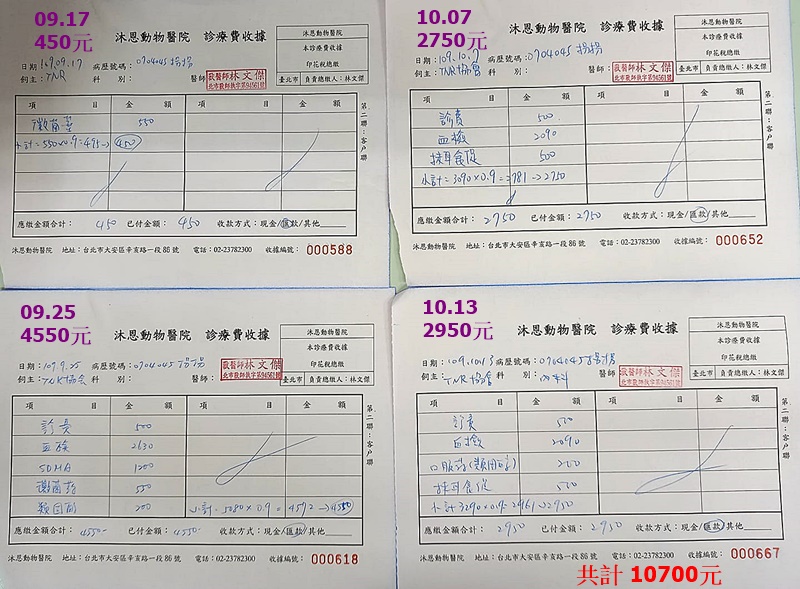 09.17
450元
沐恩動物醫院 診療費收據
沐恩動物醫院
本診療費收據
印花稅總繳
臺北市 負責總繳人：林文傑
日期：109.09.17 病歷號碼：0704045
飼主：TNR 科 別： 醫師：獸醫師林文傑
項 目 金 額 項 目 金 額
黴菌藥 550
小計=550x0.9=495→450
第二聯：客戶聯
應繳金額合計：450 已付金額：450 收款方式：現金/匯款/其他
沐恩動物醫院 地址：台北市大安區辛亥路一段86號 電話：02-23782300 收據編號：000588
10.07
2750元
沐恩動物醫院 診療費收據
沐恩動物醫院
本診療費收據
印花稅總繳
臺北市 負責總繳人：林文傑
日期：109.10.7 病歷號碼：0704045
飼主：TNR協會 科 別： 醫師：獸醫師林文傑
項 目 金 額 項 目 金 額
診費 500
血檢 2090
採耳食促 500
小計=3090x0.9=2781→2750
第二聯：客戶聯
應繳金額合計：2750 已付金額：2750 收款方式：現金/匯款/其他
沐恩動物醫院 地址：台北市大安區辛亥路一段86號 電話：02-23782300 收據編號：000652
09.25
4550元
沐恩動物醫院 診療費收據
沐恩動物醫院
本診療費收據
印花稅總繳
臺北市 負責總繳人：林文傑
日期：109.9.25 病歷號碼：0704045
飼主：TNR協會 科 別： 醫師：獸醫師林文傑
項 目 金 額 項 目 金 額
診費 500
血檢 2630
SDMA 1200
黴菌藥 550
類固醇 200 小計=5080x0.9=4572→4550
第二聯：客戶聯
應繳金額合計：4550- 已付金額：4550- 收款方式：現金/匯款/其他
沐恩動物醫院 地址：台北市大安區辛亥路一段86號 電話：02-23782300 收據編號：000618
10.13
2950元
沐恩動物醫院 診療費收據
沐恩動物醫院
本診療費收據
印花稅總繳
臺北市 負責總繳人：林文傑
日期：109.10.13 病歷號碼：0704045
飼主：TNR協會 科 別：內科 醫師：獸醫師林文傑
項 目 金 額 項 目 金 額
診費 500
血檢 2090
口服藥(類固醇) 200
採耳食促 500
小計3290x0.9=2961→2950
第二聯：客戶聯
應繳金額合計：2950 已付金額：2950 收款方式：現金/匯款/其他
沐恩動物醫院 地址：台北市大安區辛亥路一段86號 電話：02-23782300 收據編號：000667
共計 10700元